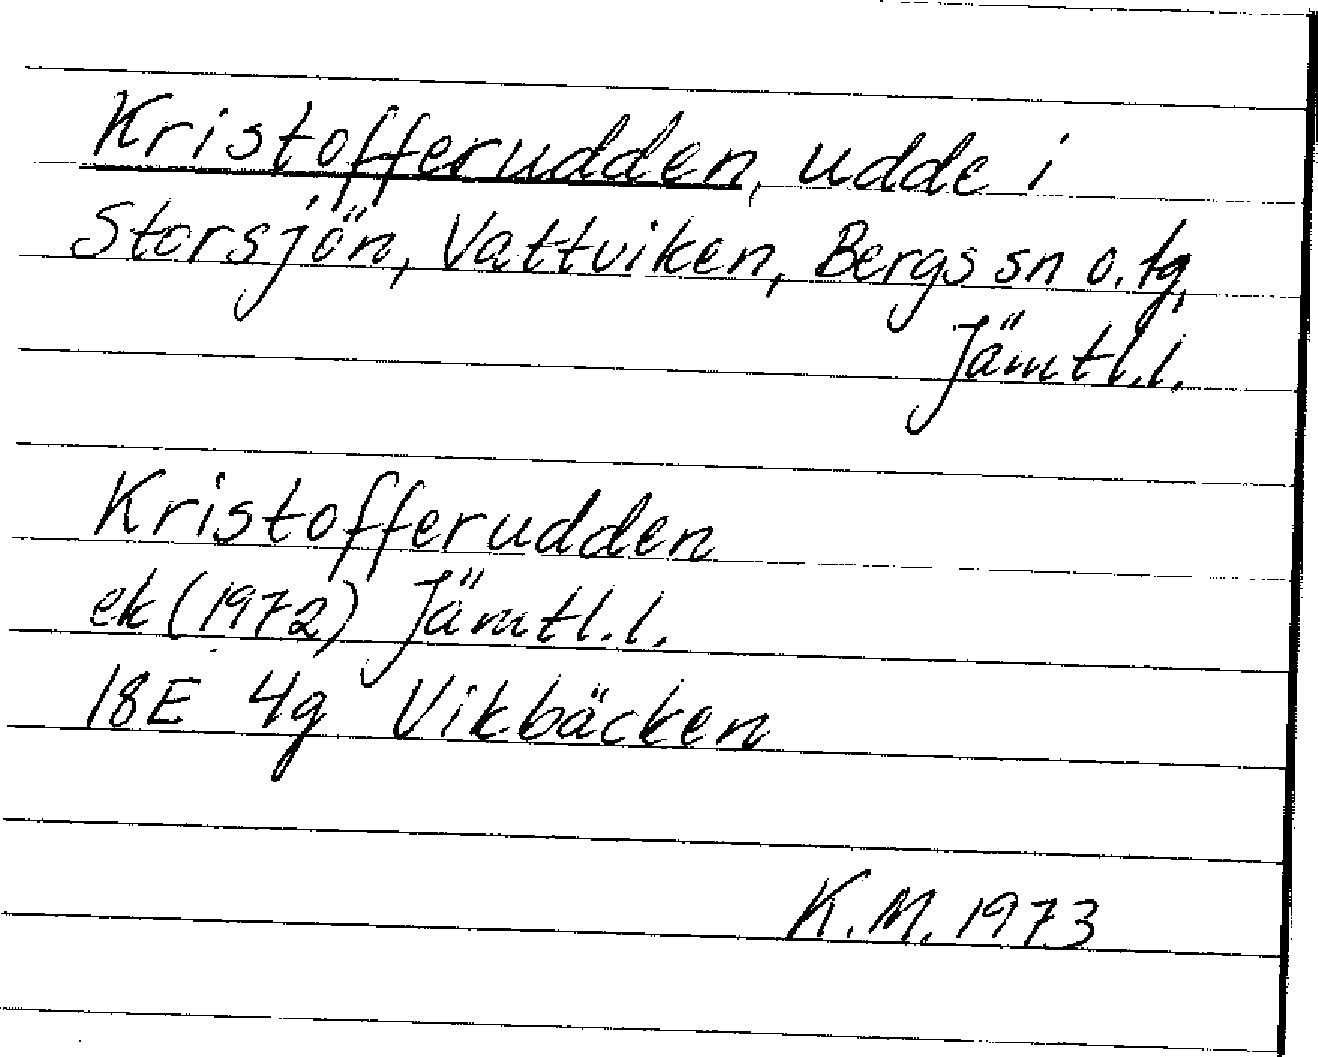 Kristofferudden, udde i
Storsjön, Vattviken, Bergs sn o. tg,
Jämtl.l.
Kristofferudden
ek (1972) Jämtl.l.
18E 4g Vikbäcken
K.M. 1973